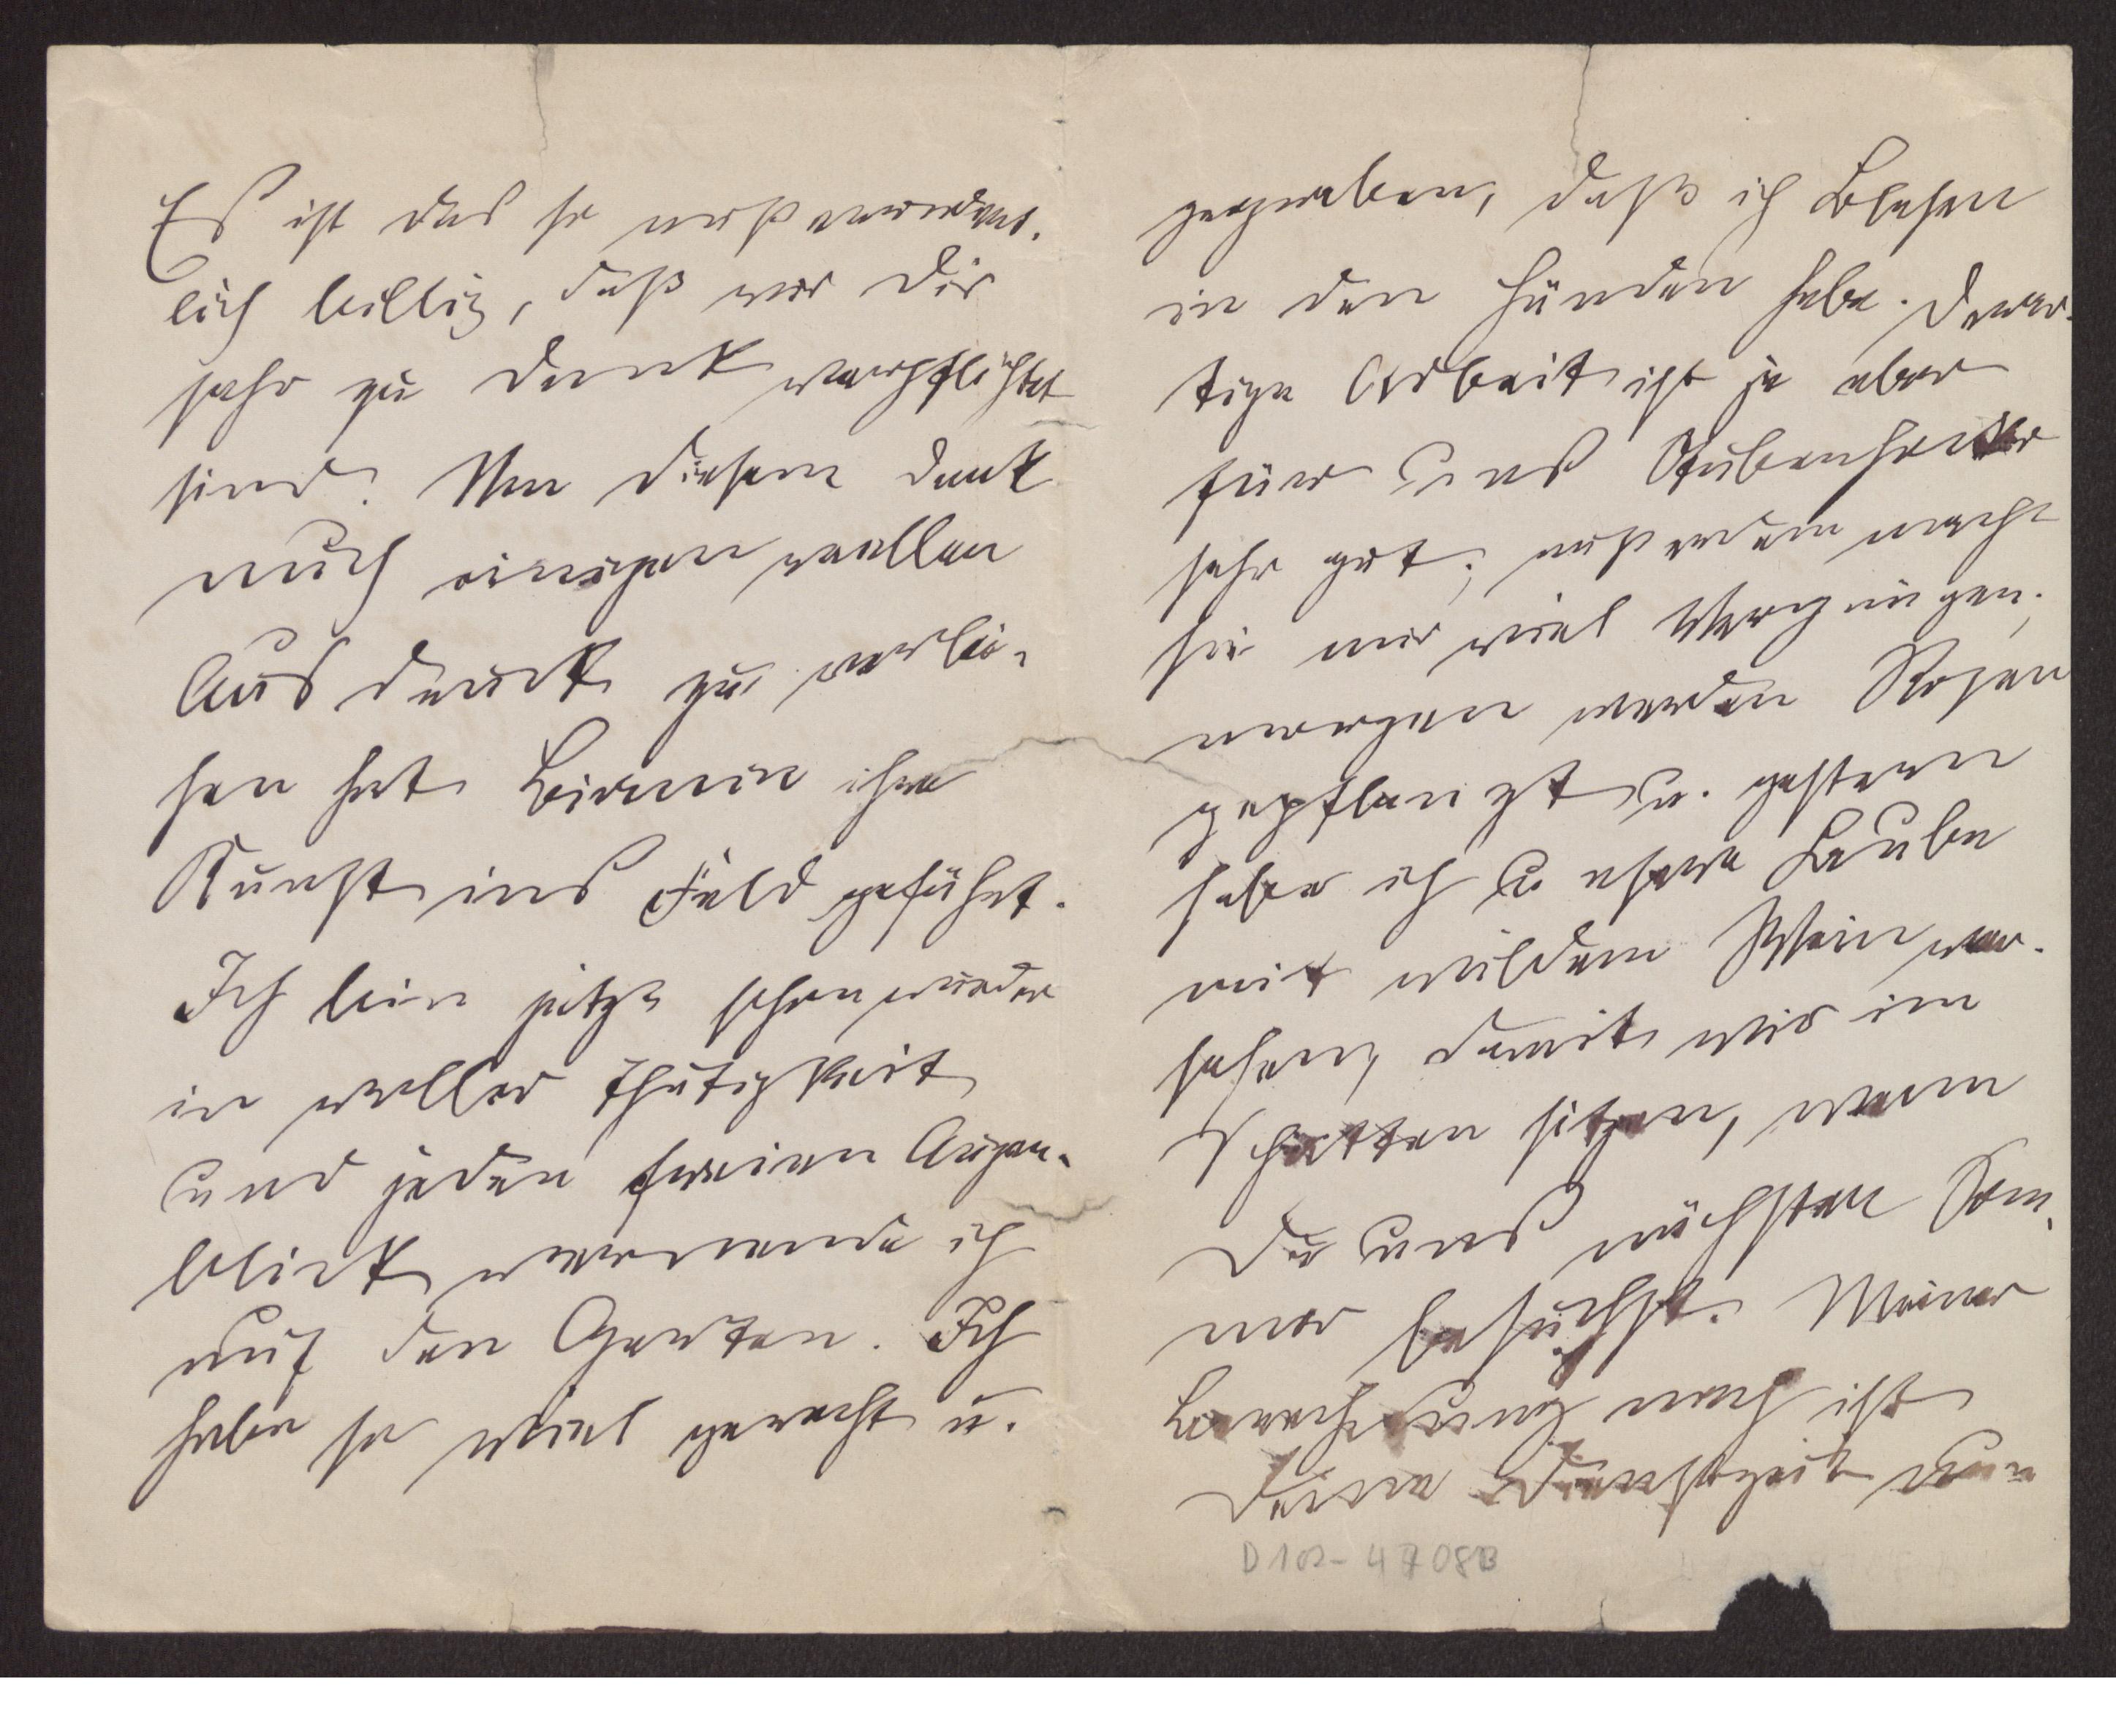 Es ist das so außerordent-
lich billig, daß wir Dir
sehr zu Dank verpflichtet
sind. Um diesem Dank
auch einigen vollen
Ausdruck zu verlei-
hen hat ihre
Kunst ins Feld geführt.
Ich bin jetzt schon wieder
in voller Thätigkeit
und jeden freien Augen-
blick verwende ich
auf den Garten. Ich
habe so viel gemacht u.
gegraben, daß ich Blasen
in den Händen habe. Derar-
tige Arbeit ist ja aber
für uns Stubenhocker
sehr gut; außerdem macht
sie mir viel Vergnügen;
morgen werden Rosen
gepflanzt u. gestern
habe ich unsere Laube
mit wildem Wein ver-
sehen, damit wir im
Schatten sitzen, wenn
Du uns nächsten Som-
mer besuchst. Meiner
Berechnung nach ist
Deine Dienstzeit
D 102-4708B